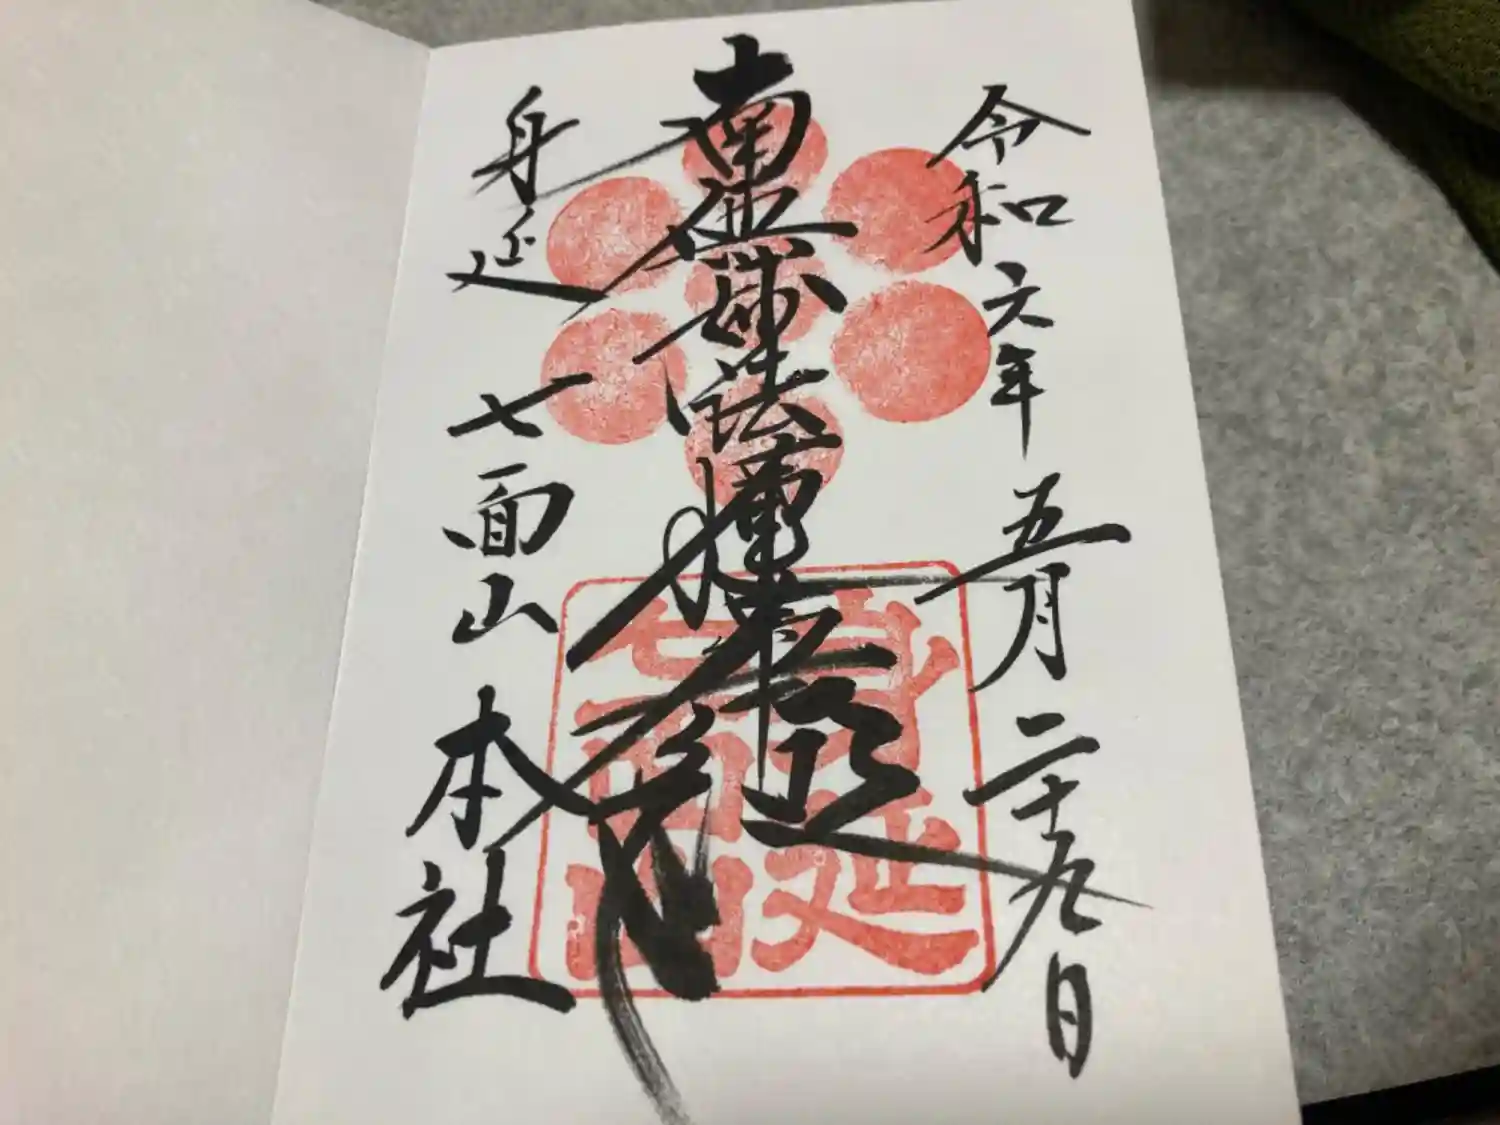 令和六年五月二十九日
南無妙法蓮華經
身延 七面山 本社
身延
七面山